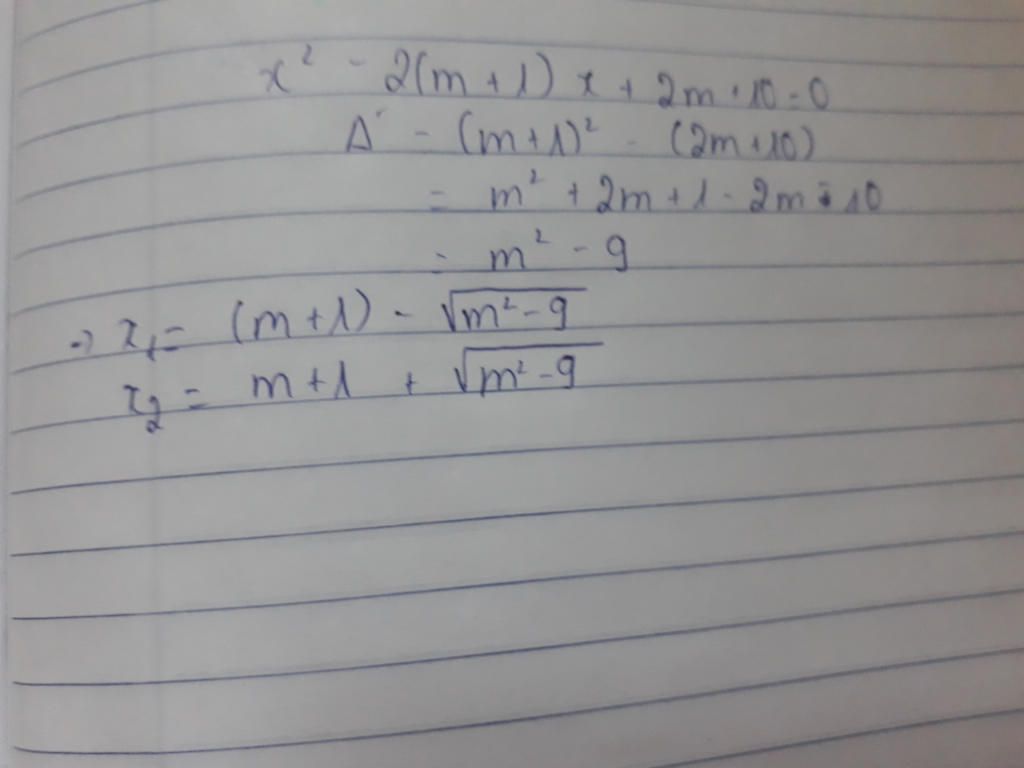 x² - 2(m + 1) x + 2m + 10 = 0
Δ' = (m+1)² - (2m+10)
= m² + 2m + 1 - 2m - 10
= m² - 9
=> x₁ = (m+1) - √(m² - 9)
x₂ = m+1 + √(m² - 9)